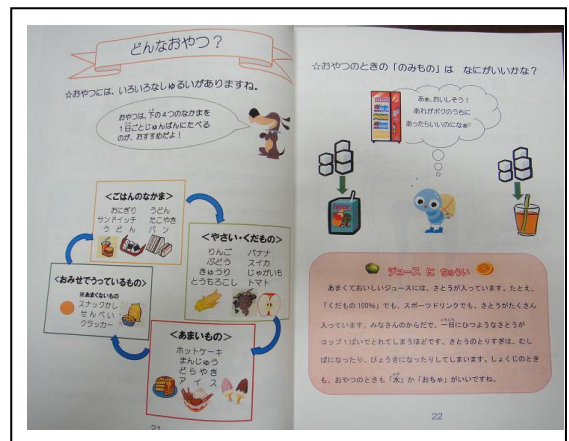 どんなおやつ？
☆おやつには、いろいろなしゅるいがありますね。
おやつは、下の4つのなかまを
1日ごとじゅんばんにたべる
のが、おすすめだよ！
＜ごはんのなかま＞
おにぎり　うどん
サンドイッチ　たこやき
うどん　パン
＜やさい・くだもの＞
りんご　バナナ
ぶどう　スイカ
きゅうり　じゃがいも
とうもろこし　トマト
＜おみせでうっているもの＞
※あまくないもの
スナックかし
せんべい
クラッカー
＜あまいもの＞
ホットケーキ
まんじゅう
どらやき
アイス
21
☆おやつのときの「のみもの」は　なにがいいかな？
あぁ、おいしそう！
あれがボクのうちに
あったらいいのになぁ
ジュース に ちゅうい
あまくておいしいジュースには、さとうが入っています。たとえ、
「くだもの100％」でも、スポーツドリンクでも、さとうがたくさん
入っています。みなさんのからだで、一日にひつようなさとうが
コップ1ぱいでとれてしまうほどです。さとうのとりすぎは、むし
ばになったり、びょうきになったりしてしまいます。しょくじのとき
も、おやつのときも「水」か「おちゃ」がいいですね。
22